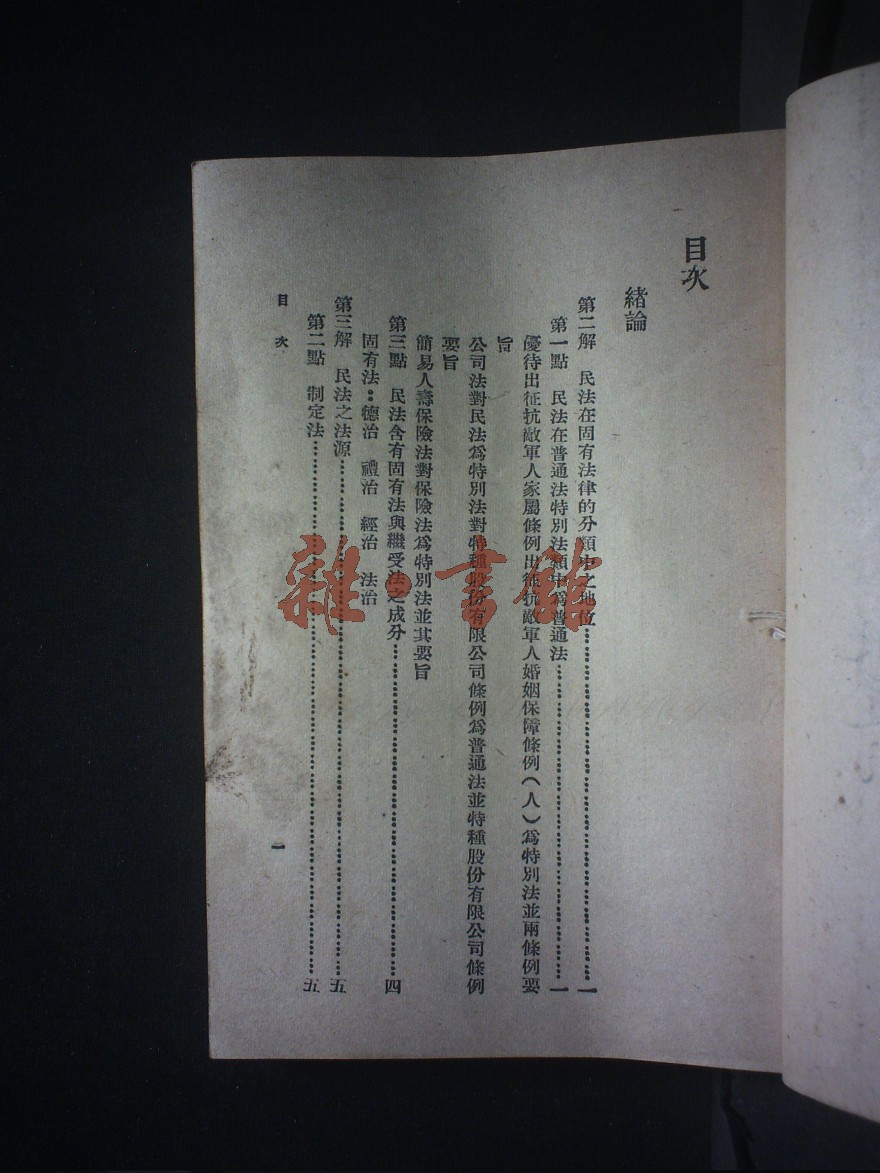 目次
緒論
第二解　民法在固有法律的分類中之地位……………一
第一點　民法在普通法特別法類中爲普通法……………一
優待出征抗敵軍人家屬條例出征抗敵軍人婚姻保障條例（人）爲特別法並兩條例要
旨
公司法對民法爲特別法對特種股份有限公司條例爲普通法並特種股份有限公司條例
要旨
簡易人壽保險法對保險法爲特別法並其要旨
第三點　民法含有固有法與繼受法之成分……………四
固有法：德治　禮治　經治　法治
第三解　民法之法源……………五
第二點　制定法……………五
目次　一
雜·書館